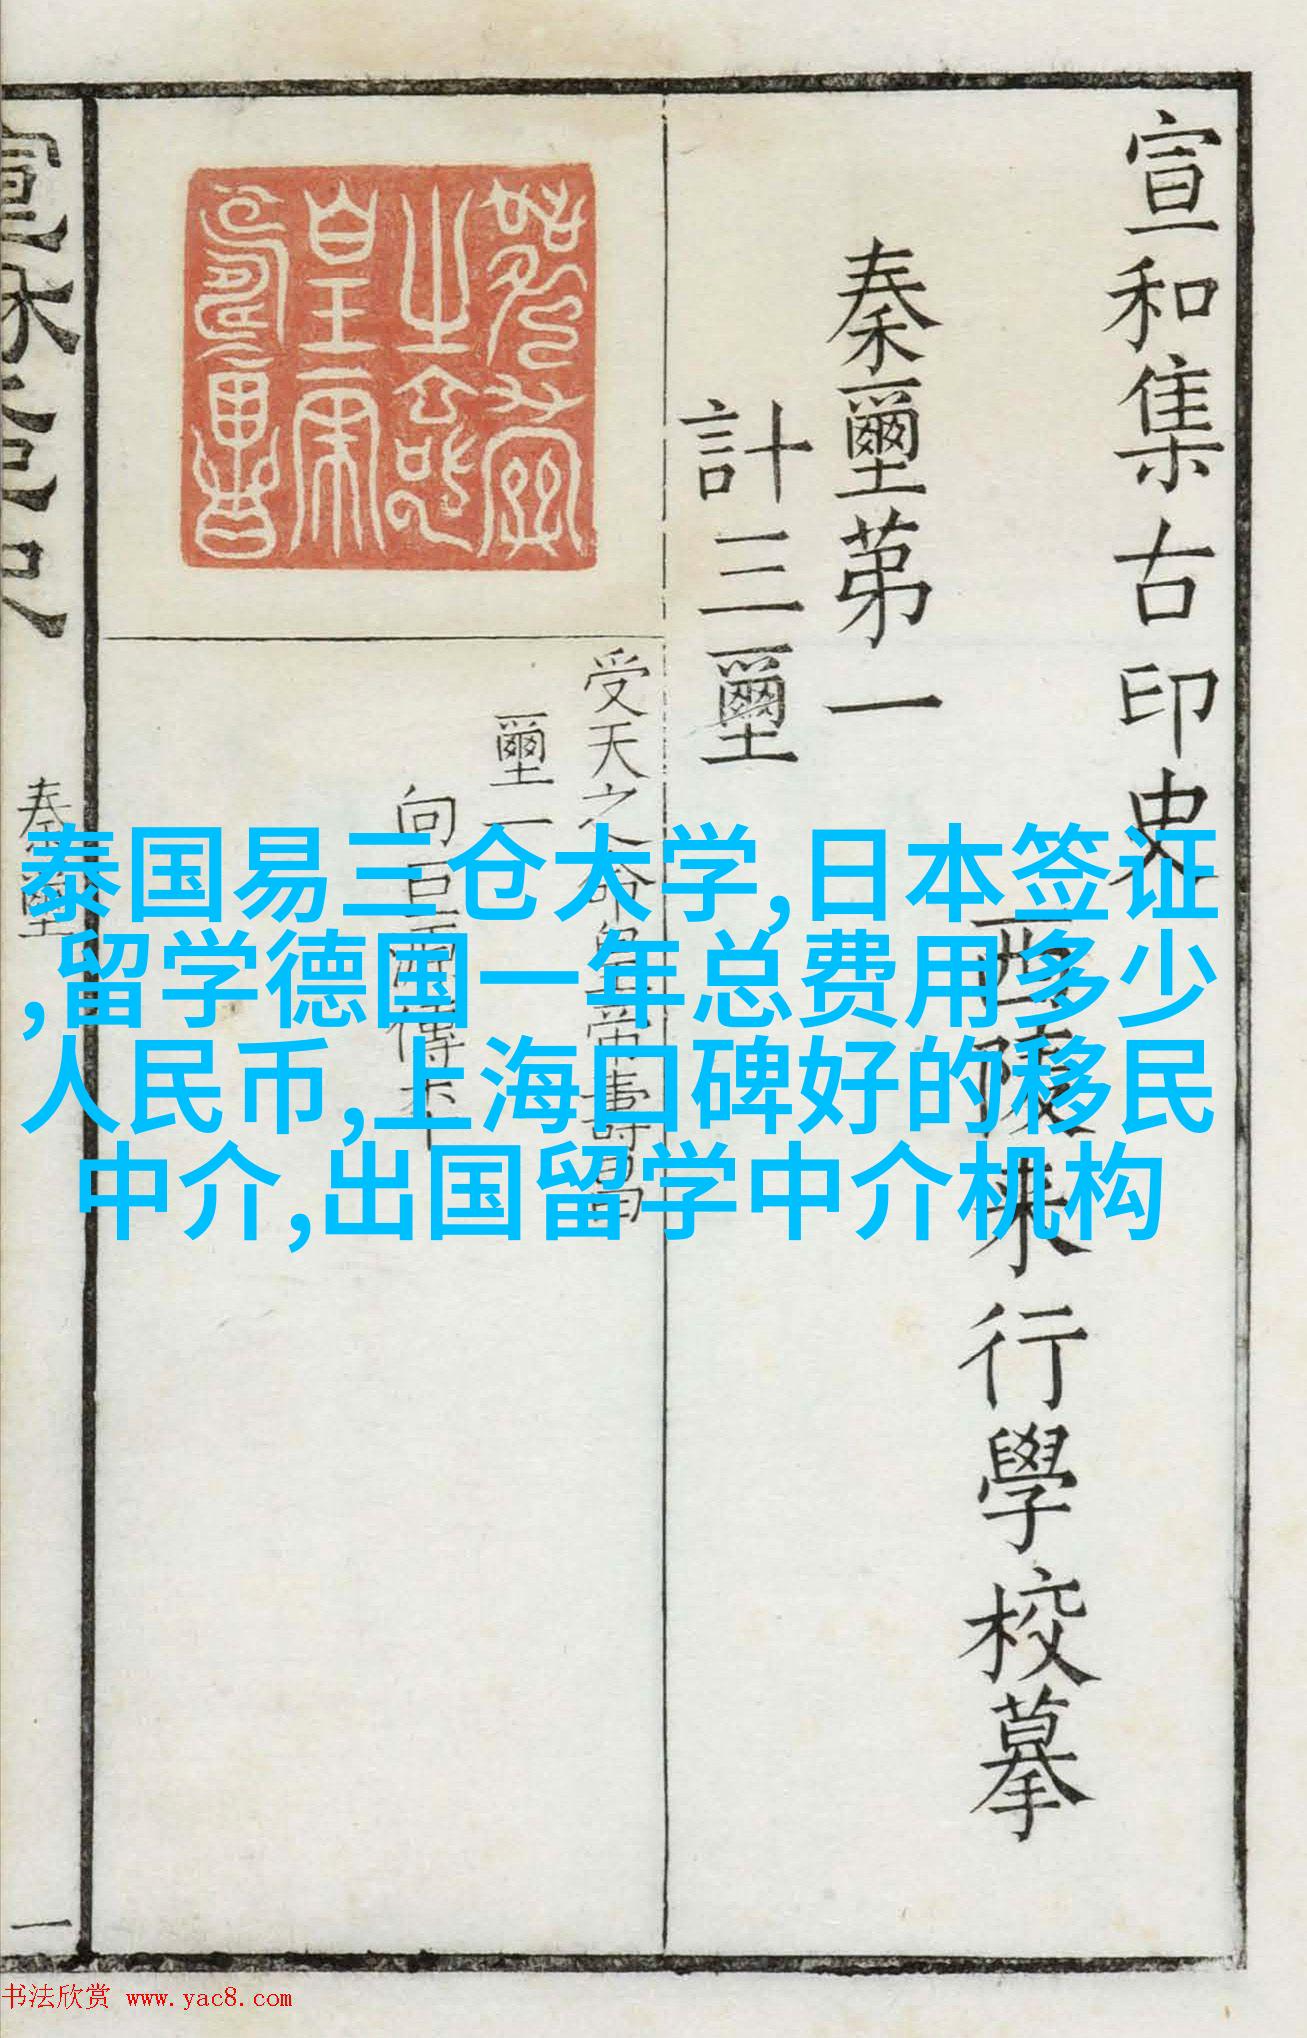 宣和集古印史
西陵来行學校摹
秦璽苐一
計三璽
受天之命皇帝壽昌
璽一
秦璽
一
泰国易三仓大学,日本签证
,留学德国一年总费用多少
人民币,上海口碑好的移民
中介,出国留学中介机构
书法欣赏 www.yac8.com